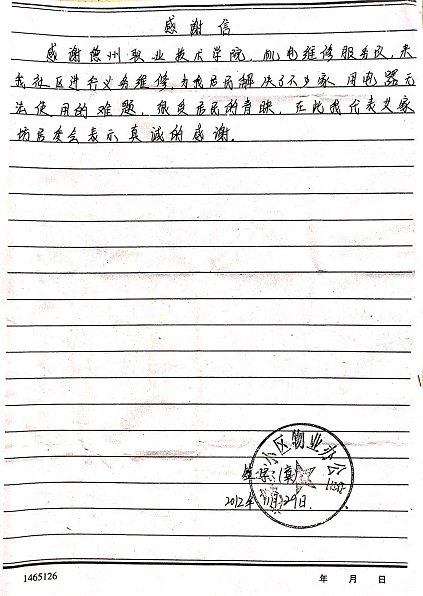 感谢信
感谢德州职业技术学院,机电维修服务队,来
我社区进行义务维修,为我居民解决了不少家用电器无
法使用的难题,很受居民的青睐,在此我代表艾家
坊居委会表示真诚的感谢.
小区物业办公
2012年11月29日.
1465126 年 月 日